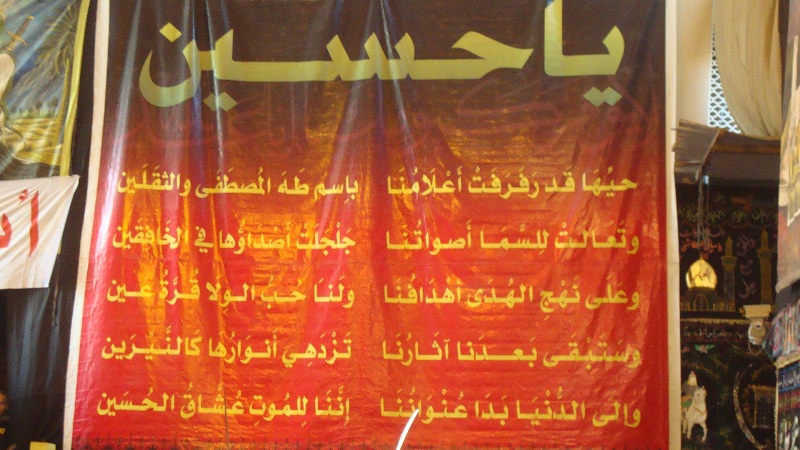 ياحسين
حيَّهَا قد رَفرَفَتْ أَعْلَامُنَا باِسمِ طهَ المُصطفَى والثقَلَين
وتَعَالتْ لِلسَّمَا أصواتُنَا جَلْجَلتْ أصْدَاؤُها في الخَافقَين
وعَلى نَهْجِ الهُدَى أهْدَافُنَا ولَنَا حُبُ الوِلا قُرَّةُ عَين
وسَتبْقى بَعدَنا آثارُنَا تَزْدهِي أنوارُها كَالنَّيّرَين
وإلى الدُّنْيَا بَدَا عُنْوَانُنَا إنَّنَا لِلمُوتِ عُشَّاقُ الحُسَين